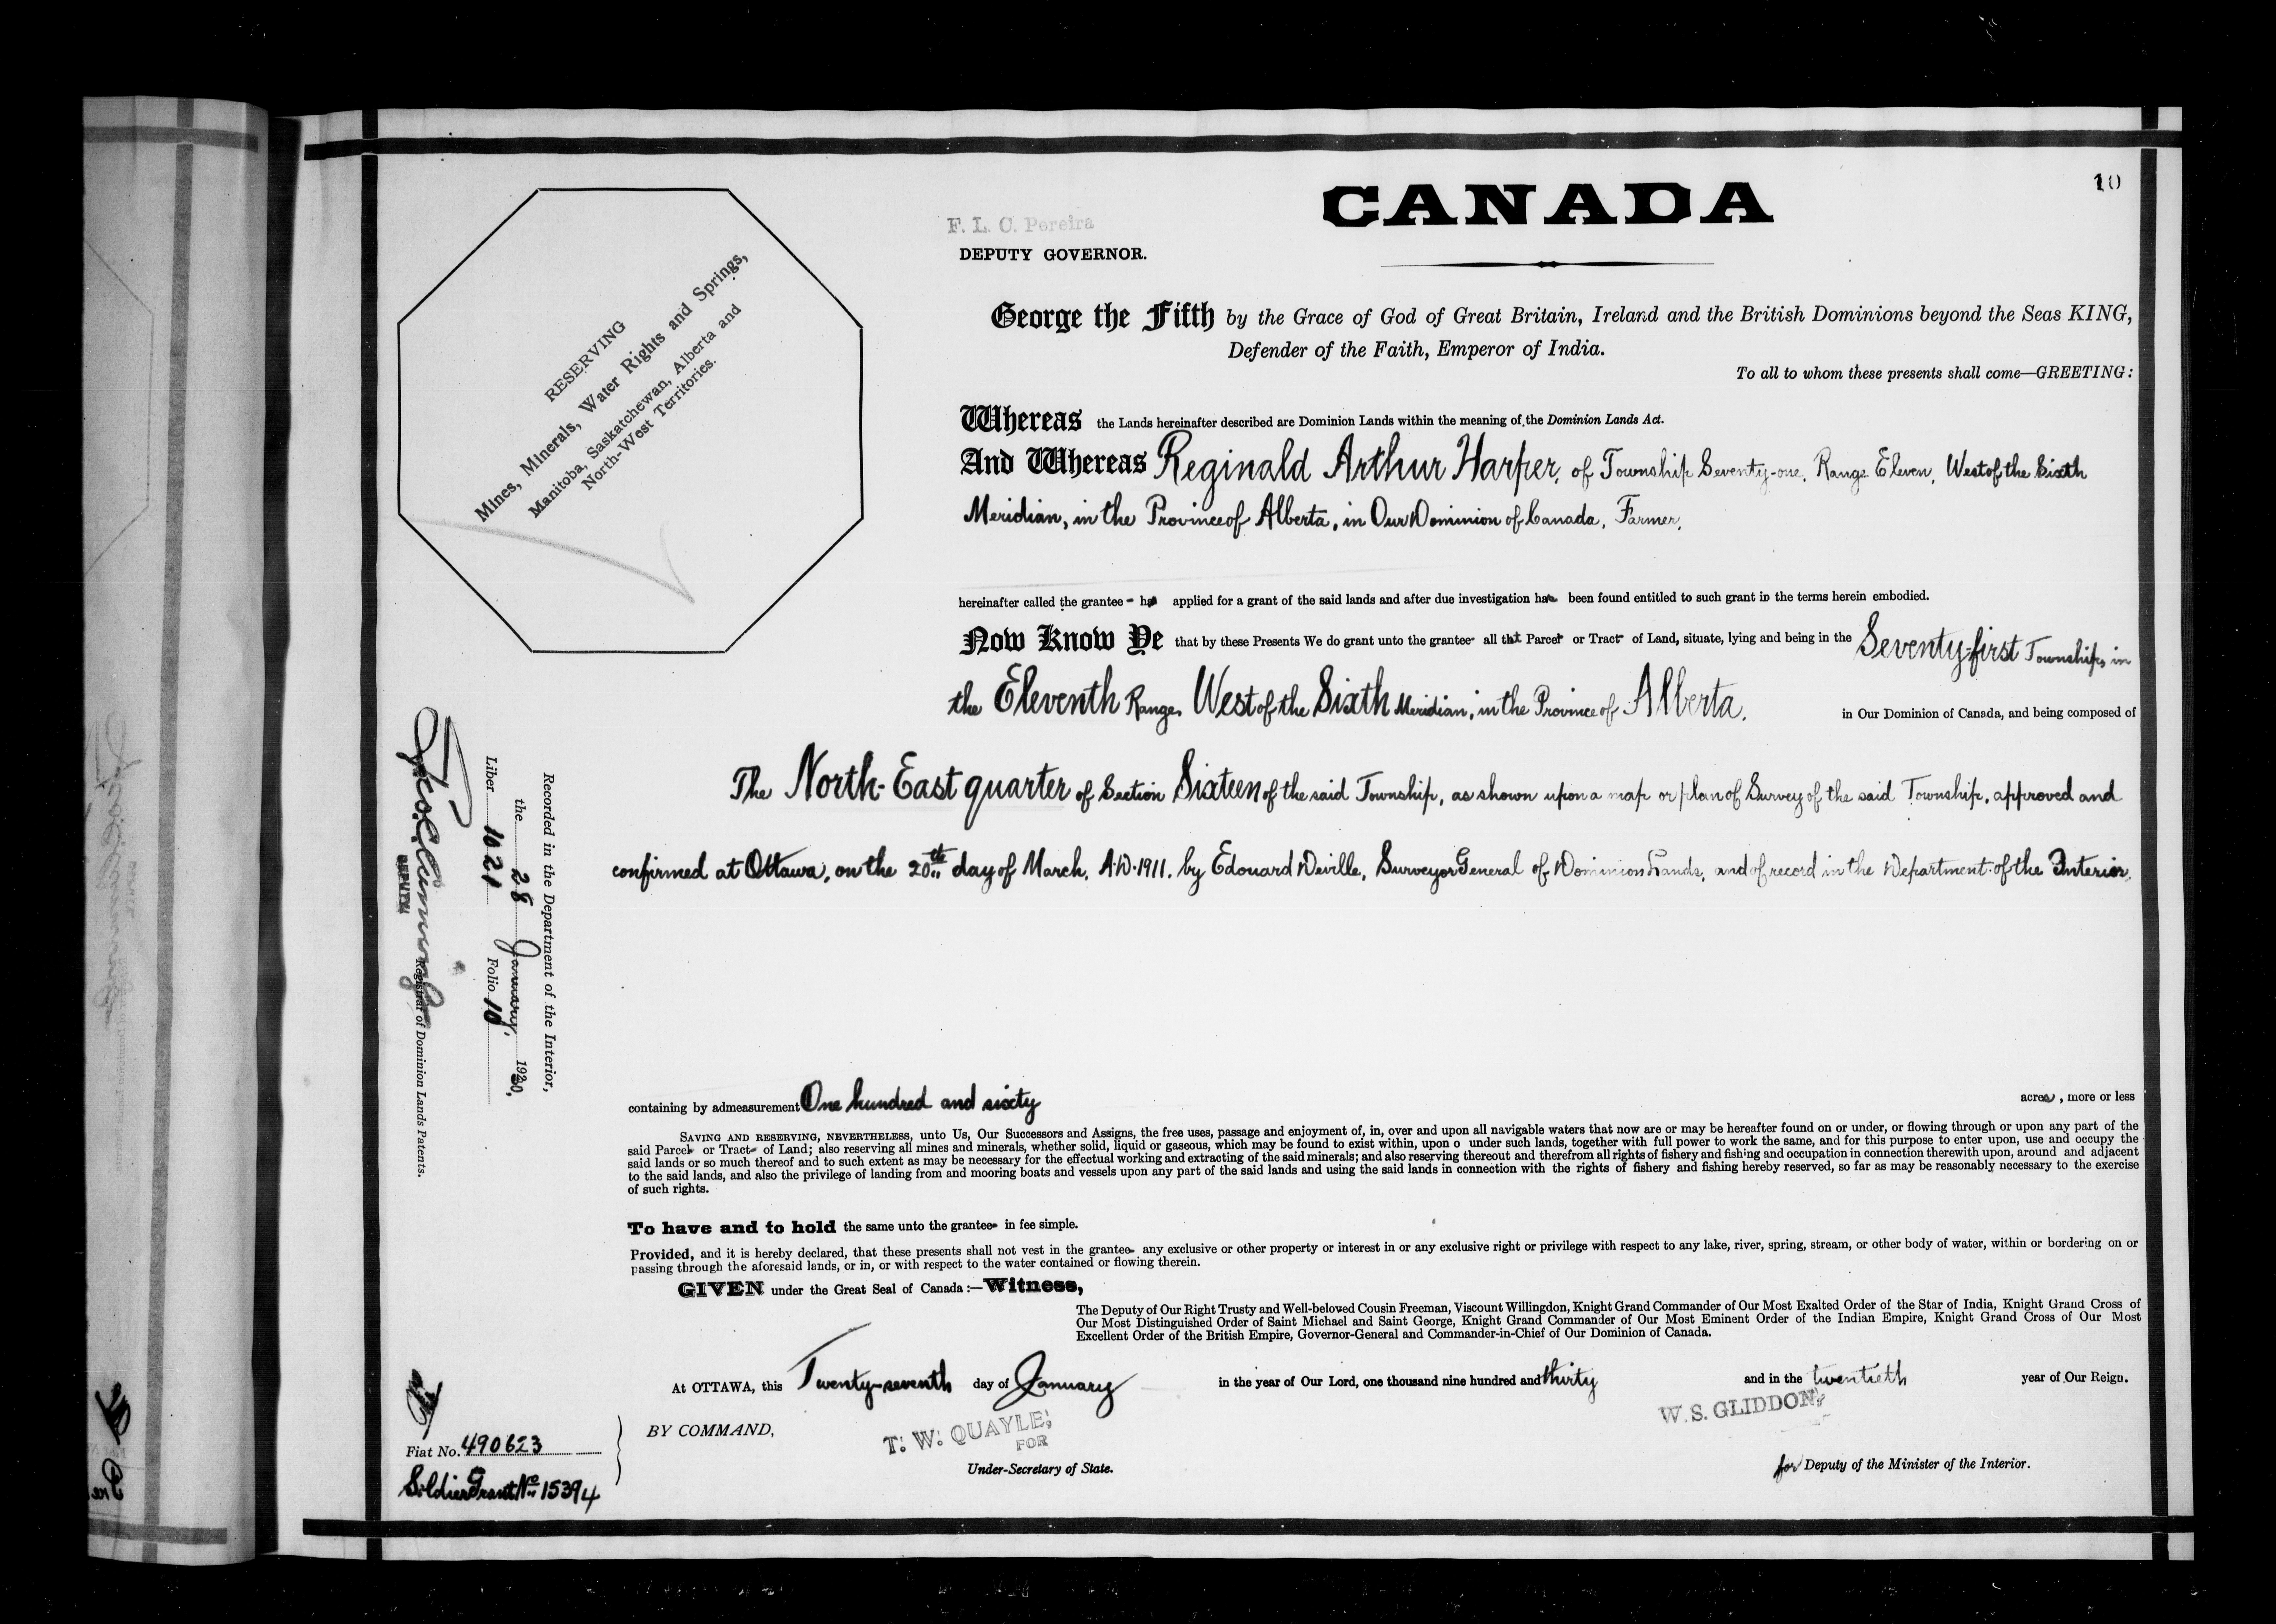 10
CANADA
F. L. C. Pereira
DEPUTY GOVERNOR.
George the Fifth by the Grace of God of Great Britain, Ireland and the British Dominions beyond the Seas KING,
Defender of the Faith, Emperor of India.
To all to whom these presents shall come—GREETING:
RESERVING
Mines, Minerals, Water Rights and Springs,
Manitoba, Saskatchewan, Alberta and
North-West Territories.
Whereas the Lands hereinafter described are Dominion Lands within the meaning of the Dominion Lands Act.
And Whereas Reginald Arthur Harper, of Township Seventy-one, Range Eleven, West of the Sixth
Meridian, in the Province of Alberta, in Our Dominion of Canada, Farmer,
hereinafter called the grantee has applied for a grant of the said lands and after due investigation has been found entitled to such grant in the terms herein embodied.
Now Know Ye that by these Presents We do grant unto the grantee all that Parcel or Tract of Land, situate, lying and being in the Seventy-first Township, in
the Eleventh Range, West of the Sixth Meridian, in the Province of Alberta, in Our Dominion of Canada, and being composed of
The North-East quarter of Section Sixteen of the said Township, as shown upon a map or plan of Survey of the said Township, approved and
confirmed at Ottawa, on the 20th day of March, A.D. 1911, by Edouard Deville, Surveyor General of Dominion Lands, and of record in the Department of the Interior,
containing by admeasurement One hundred and sixty acres, more or less
SAVING AND RESERVING, NEVERTHELESS, unto Us, Our Successors and Assigns, the free uses, passage and enjoyment of, in, over and upon all navigable waters that now are or may be hereafter found on or under, or flowing through or upon any part of the
said Parcel or Tract of Land; also reserving all mines and minerals, whether solid, liquid or gaseous, which may be found to exist within, upon o under such lands, together with full power to work the same, and for this purpose to enter upon, use and occupy the
said lands or so much thereof and to such extent as may be necessary for the effectual working and extracting of the said minerals; and also reserving thereout and therefrom all rights of fishery and fishing and occupation in connection therewith upon, around and adjacent
to the said lands, and also the privilege of landing from and mooring boats and vessels upon any part of the said lands and using the said lands in connection with the rights of fishery and fishing hereby reserved, so far as may be reasonably necessary to the exercise
of such rights.
To have and to hold the same unto the grantee in fee simple.
Provided, and it is hereby declared, that these presents shall not vest in the grantee any exclusive or other property or interest in or any exclusive right or privilege with respect to any lake, river, spring, stream, or other body of water, within or bordering on or
passing through the aforesaid lands, or in, or with respect to the water contained or flowing therein.
GIVEN under the Great Seal of Canada:—Witness,
The Deputy of Our Right Trusty and Well-beloved Cousin Freeman, Viscount Willingdon, Knight Grand Commander of Our Most Exalted Order of the Star of India, Knight Grand Cross of
Our Most Distinguished Order of Saint Michael and Saint George, Knight Grand Commander of Our Most Eminent Order of the Indian Empire, Knight Grand Cross of Our Most
Excellent Order of the British Empire, Governor-General and Commander-in-Chief of Our Dominion of Canada.
At OTTAWA, this Twenty-seventh day of January in the year of Our Lord, one thousand nine hundred and thirty and in the twentieth year of Our Reign.
BY COMMAND,
T. W. QUAYLE,
FOR
Under-Secretary of State.
W. S. GLIDDON,
for Deputy of the Minister of the Interior.
Recorded in the Department of the Interior,
the 28 January, 1930,
Liber 1021 Folio 10
DEPUTY
Registrar of Dominion Lands Patents.
Fiat No. 490623
Soldier Grant No. 15394